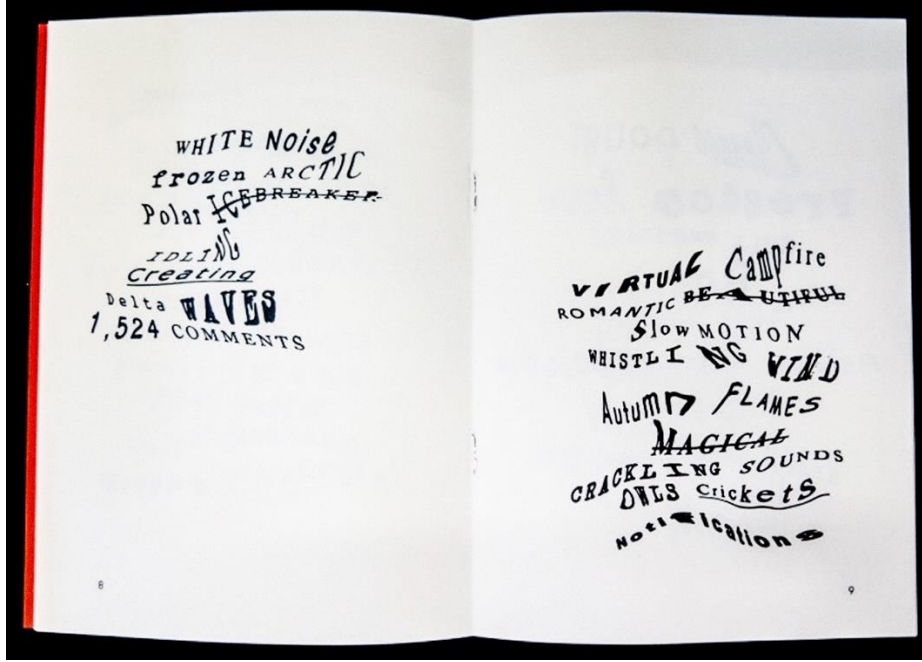 WHITE Noise
frozen ARCTIC
Polar ICEBREAKER
IDLING
Creating
Delta WAVES
1,524 COMMENTS
8
VIRTUAL Campfire
ROMANTIC BEAUTIFUL
Slow MOTION
WHISTLING WIND
Autumn FLAMES
MAGICAL
CRACKLING SOUNDS
OWLS CricketS
Notifications
9